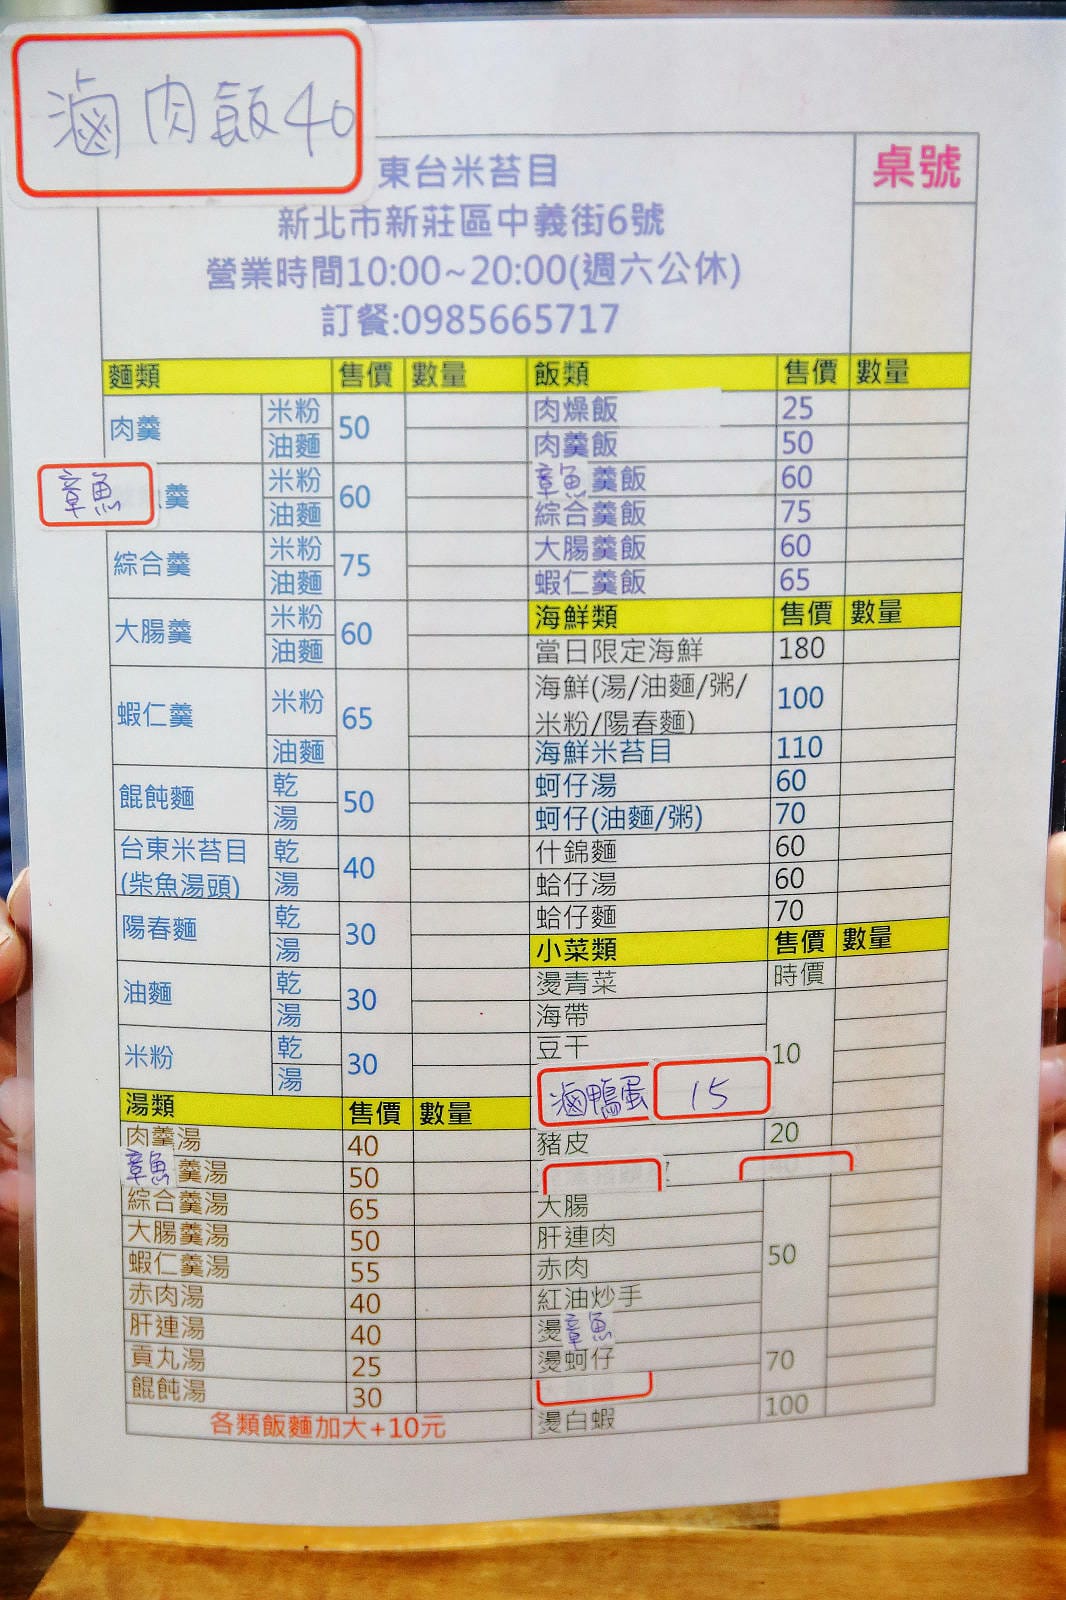 滷肉飯40
東台米苔目
桌號
新北市新莊區中義街6號
營業時間10:00~20:00(週六公休)
訂餐:0985665717
麵類 售價 數量
肉羹 米粉 油麵 50
章魚羹 米粉 油麵 60
綜合羹 米粉 油麵 75
大腸羹 米粉 油麵 60
蝦仁羹 米粉 油麵 65
餛飩麵 乾 湯 50
台東米苔目 乾 湯 40
(柴魚湯頭)
陽春麵 乾 湯 30
油麵 乾 湯 30
米粉 乾 湯 30
湯類 售價 數量
肉羹湯 40
章魚羹湯 50
綜合羹湯 65
大腸羹湯 50
蝦仁羹湯 55
赤肉湯 40
肝連湯 40
貢丸湯 25
餛飩湯 30
各類飯麵加大+10元
飯類 售價 數量
肉燥飯 25
肉羹飯 50
章魚羹飯 60
綜合羹飯 75
大腸羹飯 60
蝦仁羹飯 65
海鮮類 售價 數量
當日限定海鮮 180
海鮮(湯/油麵/粥/
米粉/陽春麵) 100
海鮮米苔目 110
蚵仔湯 60
蚵仔(油麵/粥) 70
什錦麵 60
蛤仔湯 60
蛤仔麵 70
小菜類 售價 數量
燙青菜 時價
海帶
豆干 10
滷鴨蛋 15
豬皮 20
大腸
肝連肉
赤肉 50
紅油炒手
燙章魚
燙蚵仔 70
燙白蝦 100